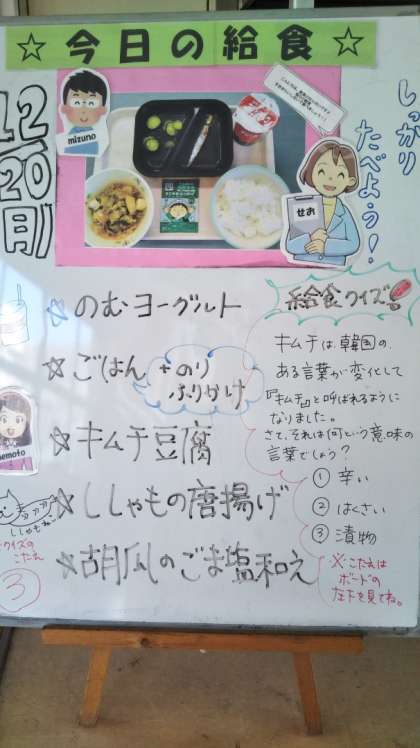 ☆ 今日の給食 ☆
12/20(月)
mizuno
しっかり
たべよう!
せお
☆のむヨーグルト
☆ごはん +のり
ふりかけ
☆キムチ豆腐
☆ししゃもの唐揚げ
☆胡瓜のごま塩和え
給食クイズ!
キムチは、韓国の、
ある言葉が変化して
『キムチ』と呼ばれるように
なりました。
さて、それは何という意味の
言葉でしょう?
① 辛い
② はくさい
③ 漬物
※こたえは
ボードの
左下を見てね。
emoto
クイズの
こたえ
③